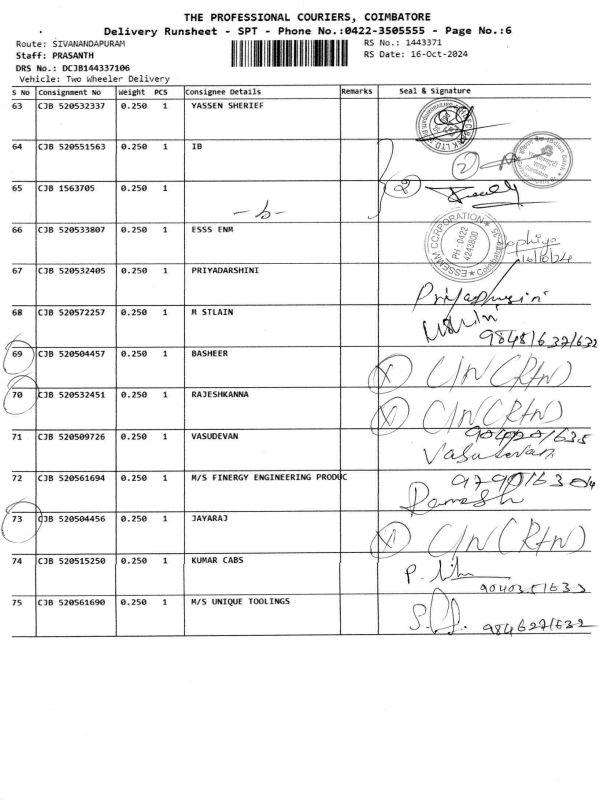 THE PROFESSIONAL COURIERS, COIMBATORE
Delivery Runsheet - SPT - Phone No.:0422-3505555 - Page No.:6
Route: SIVANANDAPURAM RS No.: 1443371
Staff: PRASANTH RS Date: 16-Oct-2024
DRS No.: DCJB144337106
Vehicle: Two Wheeler Delivery
S No Consignment No Weight PCS Consignee Details Remarks Seal & Signature
63 CJB 520532337 0.250 1 YASSEN SHERIEF
64 CJB 520551563 0.250 1 IB
2
65 CJB 1563705 0.250 1
2
66 CJB 520533807 0.250 1 ESSS ENM
ESSEMM CORPORATION
PH : 0422
4243800
16/10/24
67 CJB 520532405 0.250 1 PRIYADARSHINI
68 CJB 520572257 0.250 1 M STLAIN
69 CJB 520504457 0.250 1 BASHEER
X C/N (R+N)
70 CJB 520532451 0.250 1 RAJESHKANNA
X C/N (R+N)
71 CJB 520509726 0.250 1 VASUDEVAN
Vasudevan
72 CJB 520561694 0.250 1 M/S FINERGY ENGINEERING PRODUC
Ramesh
73 CJB 520504456 0.250 1 JAYARAJ
X C/N (R+N)
74 CJB 520515250 0.250 1 KUMAR CABS
75 CJB 520561690 0.250 1 M/S UNIQUE TOOLINGS